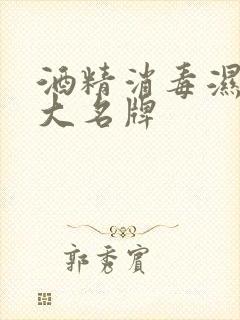 酒精消毒濕
大名牌
郭秀賓